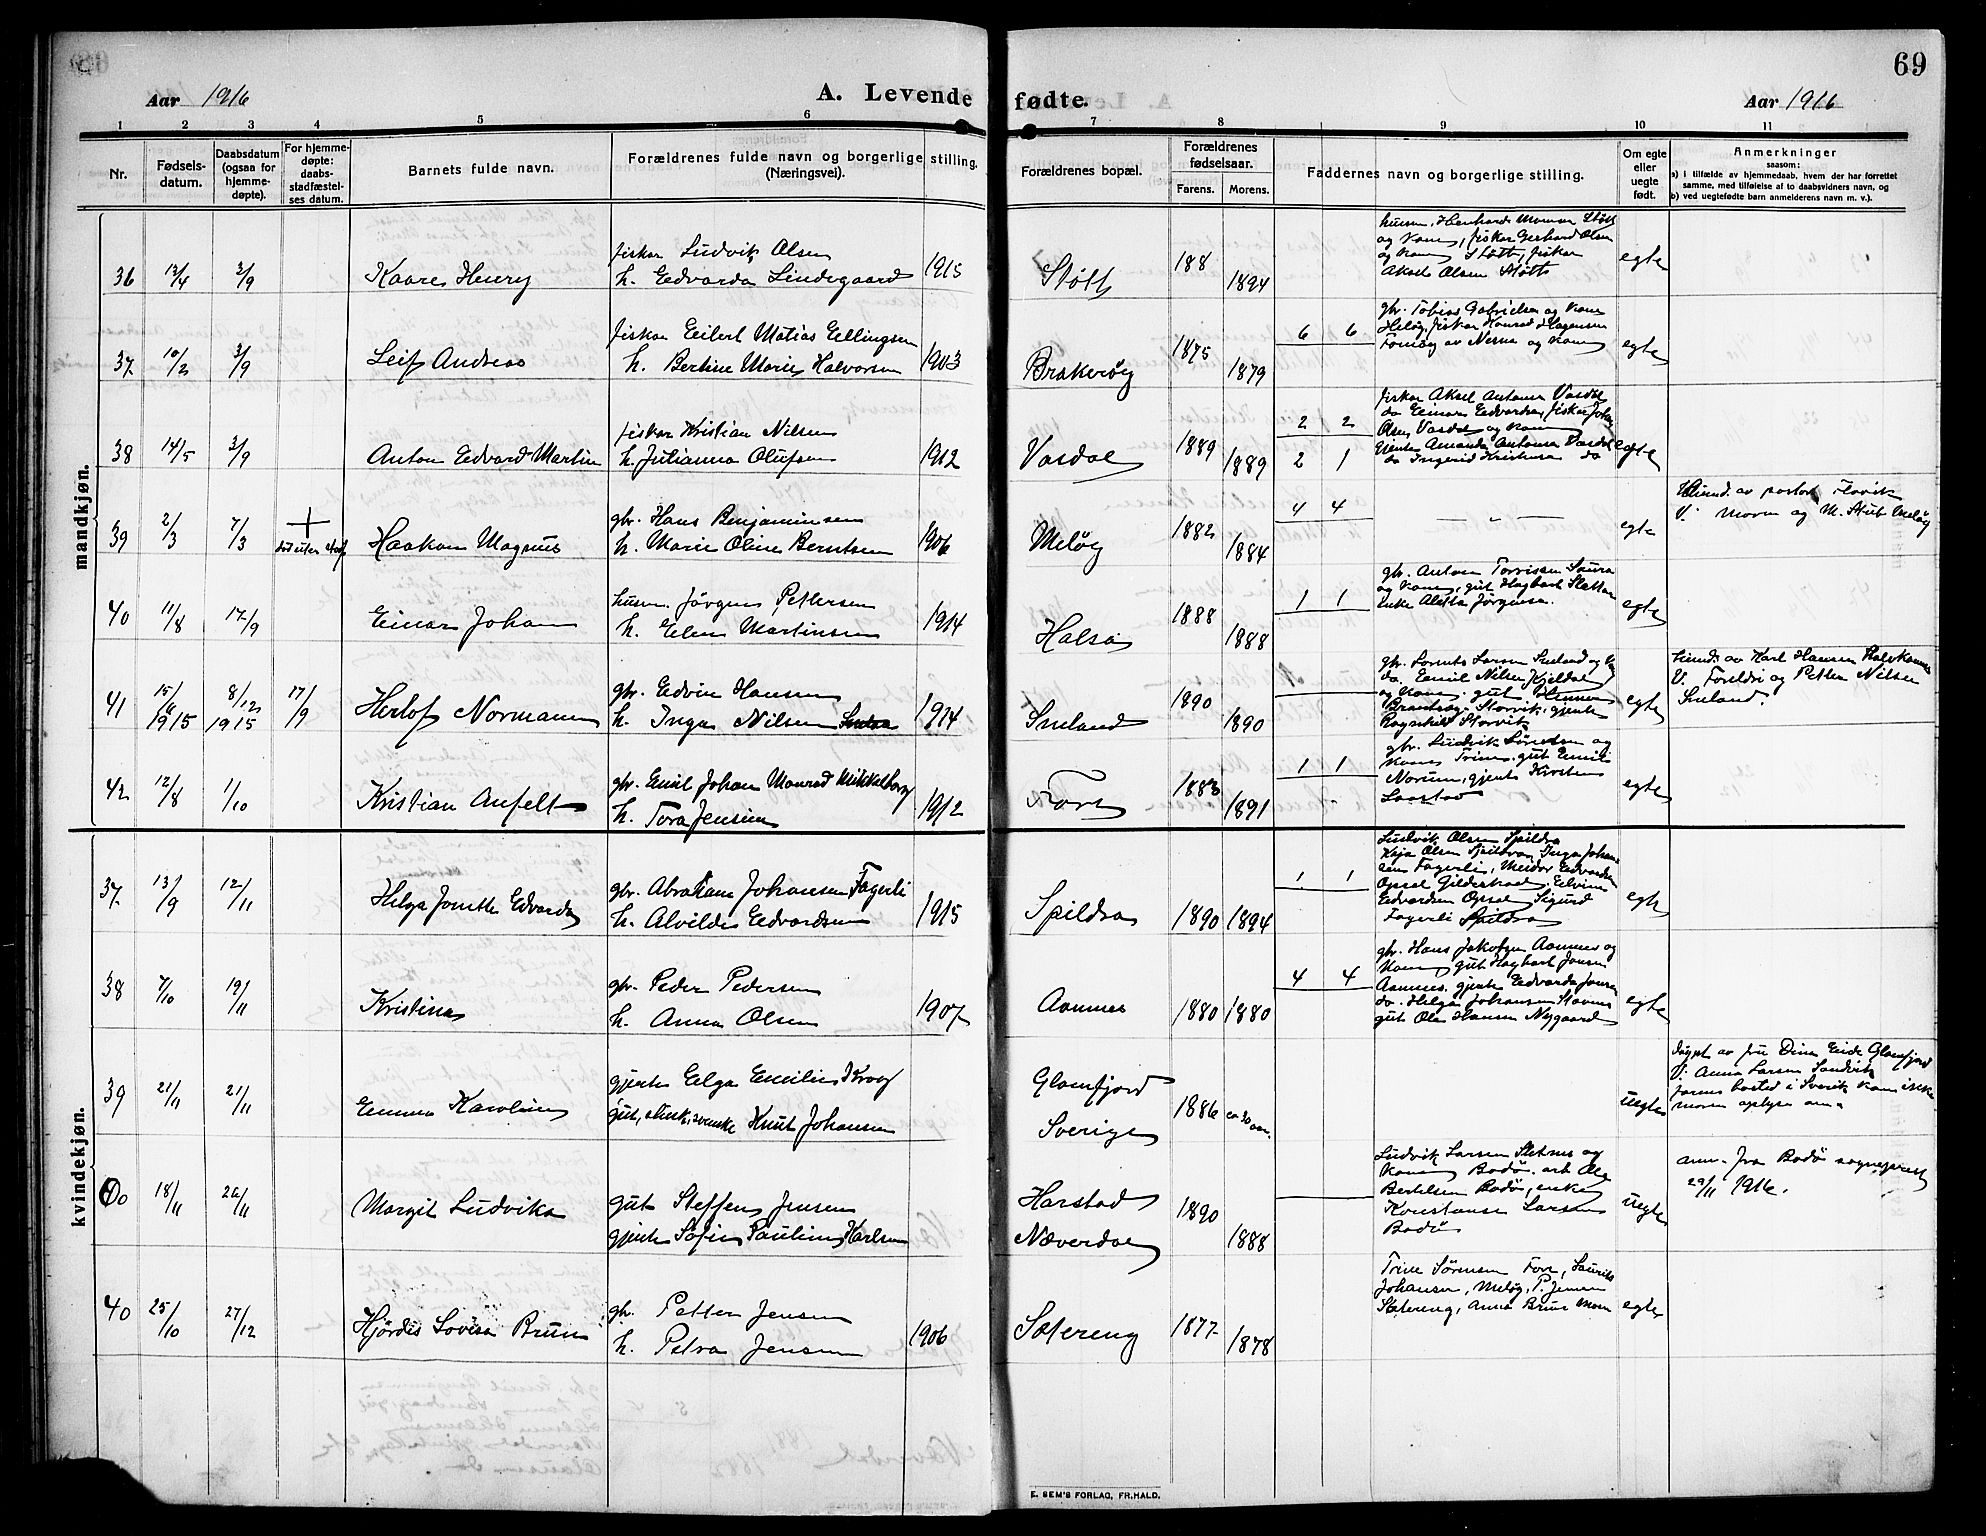 69
Aar 1916
A. Levende fødte.
Aar 1916
1 2 3 4 5 6 7 8 9 10 11
Nr.
Fødsels-
datum.
Daabsdatum
(ogsaa for
hjemme-
døpte).
For hjemme-
døpte:
daabs-
stadfæstel-
ses datum.
Barnets fulde navn.
Forældrenes fulde navn og borgerlige stilling.
(Næringsvei).
Forældrenes bopæl.
Forældrenes
fødselsaar.
Farens. Morens.
Faddernes navn og borgerlige stilling.
Om egte
eller
uegte
født.
Anmerkninger
saasom:
a) i tilfælde av hjemmedaab, hvem der har forrettet
samme, med tilføielse af to daabsvidners navn, og
b) ved uegtefødte børn anmelderens navn m. v.).
mandkjøn.
36 13/4 3/9 Kaare Henry
fisker Ludvik Olsen
h. Edvarda Lindegaard 1915
Støtt 188 1894
og kone, fisker Gerhard Olsen
og kone Støtt, fisker
Aksel Olsen Støtt
egte
37 10/2 3/9 Leif Andreas
fisker Eilert Matias Ellingsen
h. Bertine Marie Halvorsen 1903
Brakerøg 1875 1879
6 6
gbr. Tobias Gabrielsen og kone
Meløg, fisker Konrad Hagensen
egte
38 14/5 3/9 Anton Edvard Martin
fisker Kristian Nilsen
h. Julianna Olufsen 1912
Vasdal 1889 1889
2 2
2 1
fisker Aksel Antonsen Vasdal
do Einar Edvardsen, fisker Johan
Olsen Vasdal og kone
Gjente Amanda Antonsen Vasdal
do Ingerid Kristensen do
egte
39 2/3 7/3 Haakon Magnus
gbr. Hans Benjaminsen
h. Marie Oline Berntsen 1906
Meløg 1882 1884
4 4
— „ —
egte
V. moren og M. Stub Meløg
40 11/8 17/9 Einar Johan
husm. Jörgen Pettersen
h. Elen Martinsen 1914
Halsa 1888 1888
1 1
gbr. Anton Torrisen Saura
og kone, gut Hagbart Slettan
enke Aletta Jørgensen.
egte
41 15/6 1915 8/12 1915 17/9 Herlof Normann
gbr. Edvin Hansen
h. Inga Nilsen 1914
Smeland 1890 1890
gbr. Lorents Larsen Smeland og
do. Emil Nilsen Kjeldal
og kone. gut
Storvik, gjente
Ragnhild Storvik
egte
hmd. av Karl Hansen
V. Foreldri og Petter Nilsen
Smeland.
42 12/8 1/10 Kristian Anfelt
gbr. Emil Johan Monrad Mikkelborg
h. Tora Jensen 1912
Fore 1883 1891
1 1
gbr. Ludvik Sørensen og
kone Trine. gut Emil
Norum, gjente Kirsten
egte
kvindekjøn.
37 13/9 12/11 Helga Jonette Edvarda
gbr. Abraham Johansen Fagerli
h. Alvilde Edvardsen 1915
Spildra 1890 1894
1 1
Ludvik Olsen Spildra
Kaja Olsen Spildra, Inga Johan-
sen Fagerli, Meidor Edvardsen
Opsal Gildeskaal, Elvine
Edvardsen Opsal Sigurd
Fagerli Spildra
egte
38 7/10 19/11 Kristine
gbr. Peder Pedersen
h. Anna Olsen 1907
Aamnes 1880 1880
4 4
gbr. Hans Jakobsen Aamnes og
kone gut Hagbart Jensen
Aamnes. gjente Edvarda Jensen
do. Helga Johansen Stavnes
gut Ole Hansen Nygaard
egte
39 21/11 21/11 Emma Karoline
gjente Elga Emilie Krog
gut, svenske Knut Johansen
Glomfjord
Sverige
1886 ca 30 aar.
uegte
døypt av fru Dina Eide Glomfjord
V. Anna Larsen Sandvik
farens bosted i Sverik kan ikke
moren oplyse om.
40 18/11 26/11 Margit Ludvika
gut Steffen Jensen
gjente Sofie Pauline Karlsen
Harstad
Næverdal
1890 1888
Ludvik Larsen Sletnes og
kone Bodø. arb Ole
Bertelsen Bodø, enke
Konstanse Larsen
Bodø
uegte
anm. fra Bodø sogneprest
29/11 1916.
40 25/10 27/12 Hjördis Lovise Brun
gbr. Petter Jensen
h. Petra Jensen 1906
Sætereng 1877 1878
Trine Sørensen Fore, Laurits
Johansen, Meløg, P. Jensen
Sætereng, Anna Brun Moen
egte
E. SEM'S FORLAG, FR.HALD.